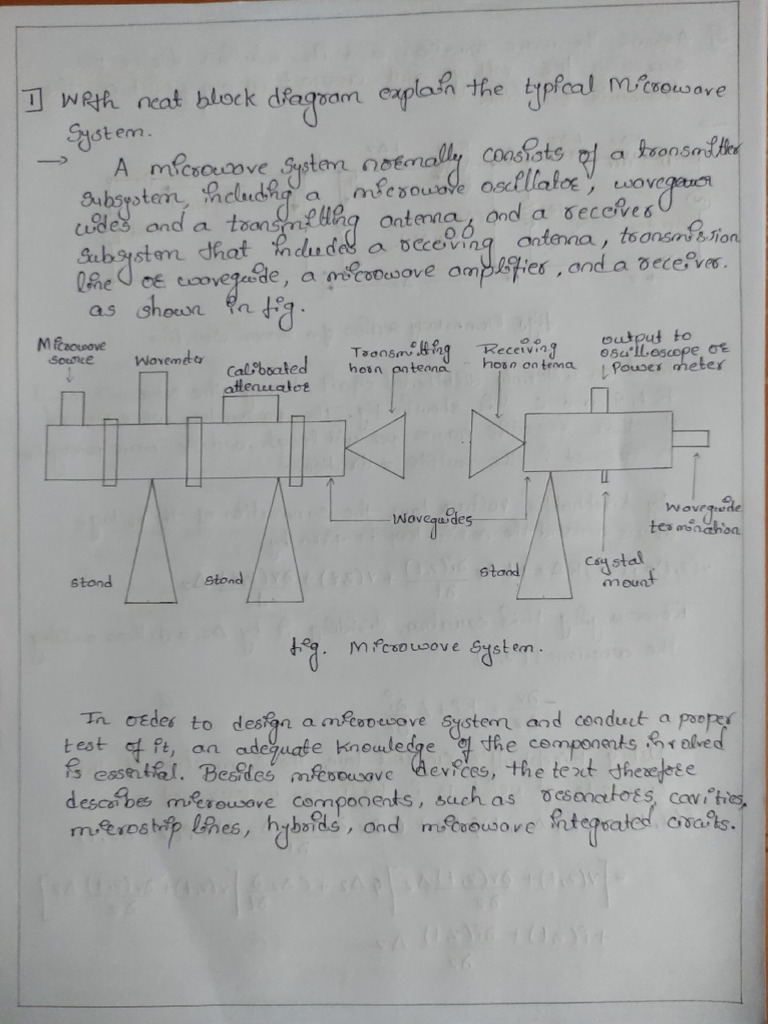 1] With neat block diagram explain the typical Microwave
System.
→ A microwave system normally consists of a transmitter
subsystem, including a microwave oscillator, waveguer
uides and a transmitting antenna, and a receiver
subsystem that includes a receiving antenna, transmission
line or waveguide, a microwave amplifier, and a receiver.
as shown in fig.
Microwave
source
Wavemeter
Calibrated
attenuator
Transmitting
horn antenna
Receiving
horn antenna
output to
oscilloscope or
power meter
Waveguides
Waveguide
termination
stand
stand
stand
crystal
mount
fig. Microwave System.
In order to design a microwave system and conduct a proper
test of it, an adequate knowledge of the components involved
is essential. Besides microwave devices, the text therefore
describes microwave components, such as resonators, cavities,
microstrip lines, hybrids, and microwave integrated circuits.